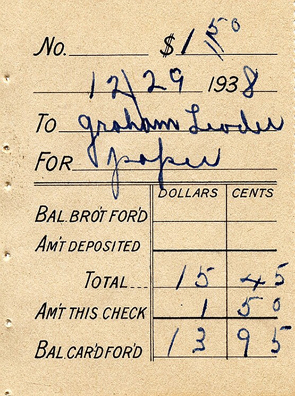 No. $ 1 50
12/29 1938
TO Graham Leader
FOR paper
DOLLARS CENTS
BAL. BRO'T FOR'D
AM'T DEPOSITED
TOTAL... 15 45
AM'T THIS CHECK 1 50
BAL. CAR'D FOR'D 13 95